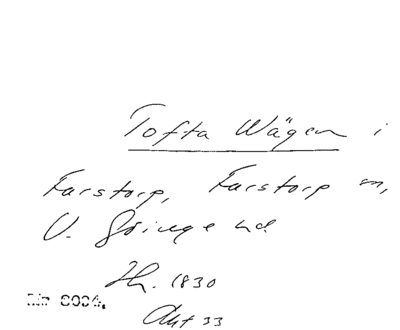 Tofta Wägen i
Farstorp, Farstorp sn,
V. Göinge hd
Jh. 1830
Nr 8004.
Akt 33